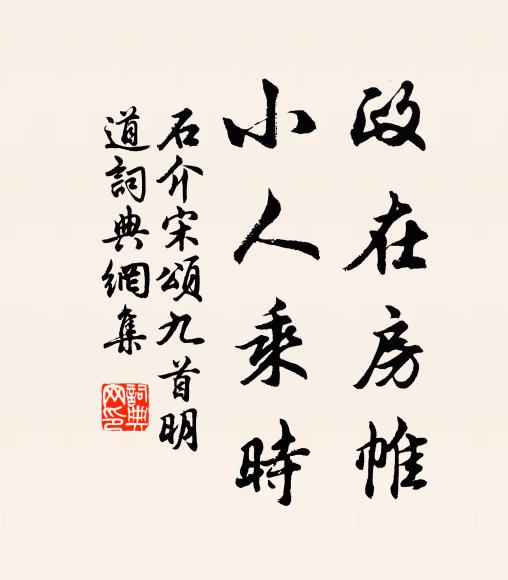 政在房帷
小人乘時
石介宋頌九首明
道詞典網集
詞典
网印